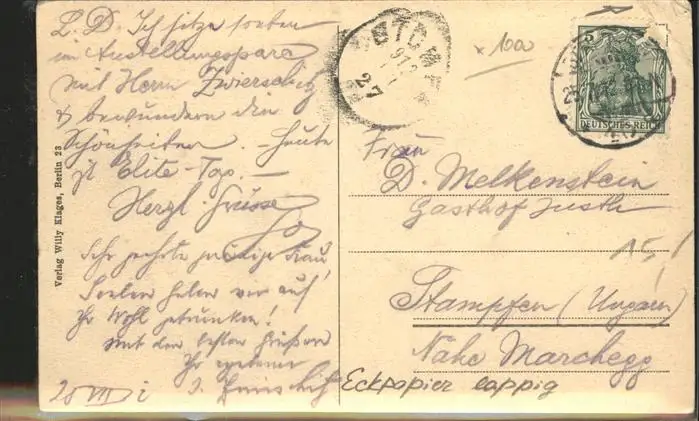 L. D. Ich sitze soeben
im Ausstellungspark
mit Herrn Zwierschitz
& bewundern die
Schönheiten. - Heute
ist Elite-Tag. -
Herzl. Grüsse
Sehr geehrte gnädige Frau!
Soeben haben wir auf
Ihr Wohl getrunken!
Mit den besten Grüßen
Ihr ergebener
25 VII
Verlag Willy Klages, Berlin 23
5
DEUTSCHES REICH
27
Frau
D. Melkenstein
Gasthof
15
Stampfen (Ungarn)
Nähe Marchegg
Eckpapier lappig